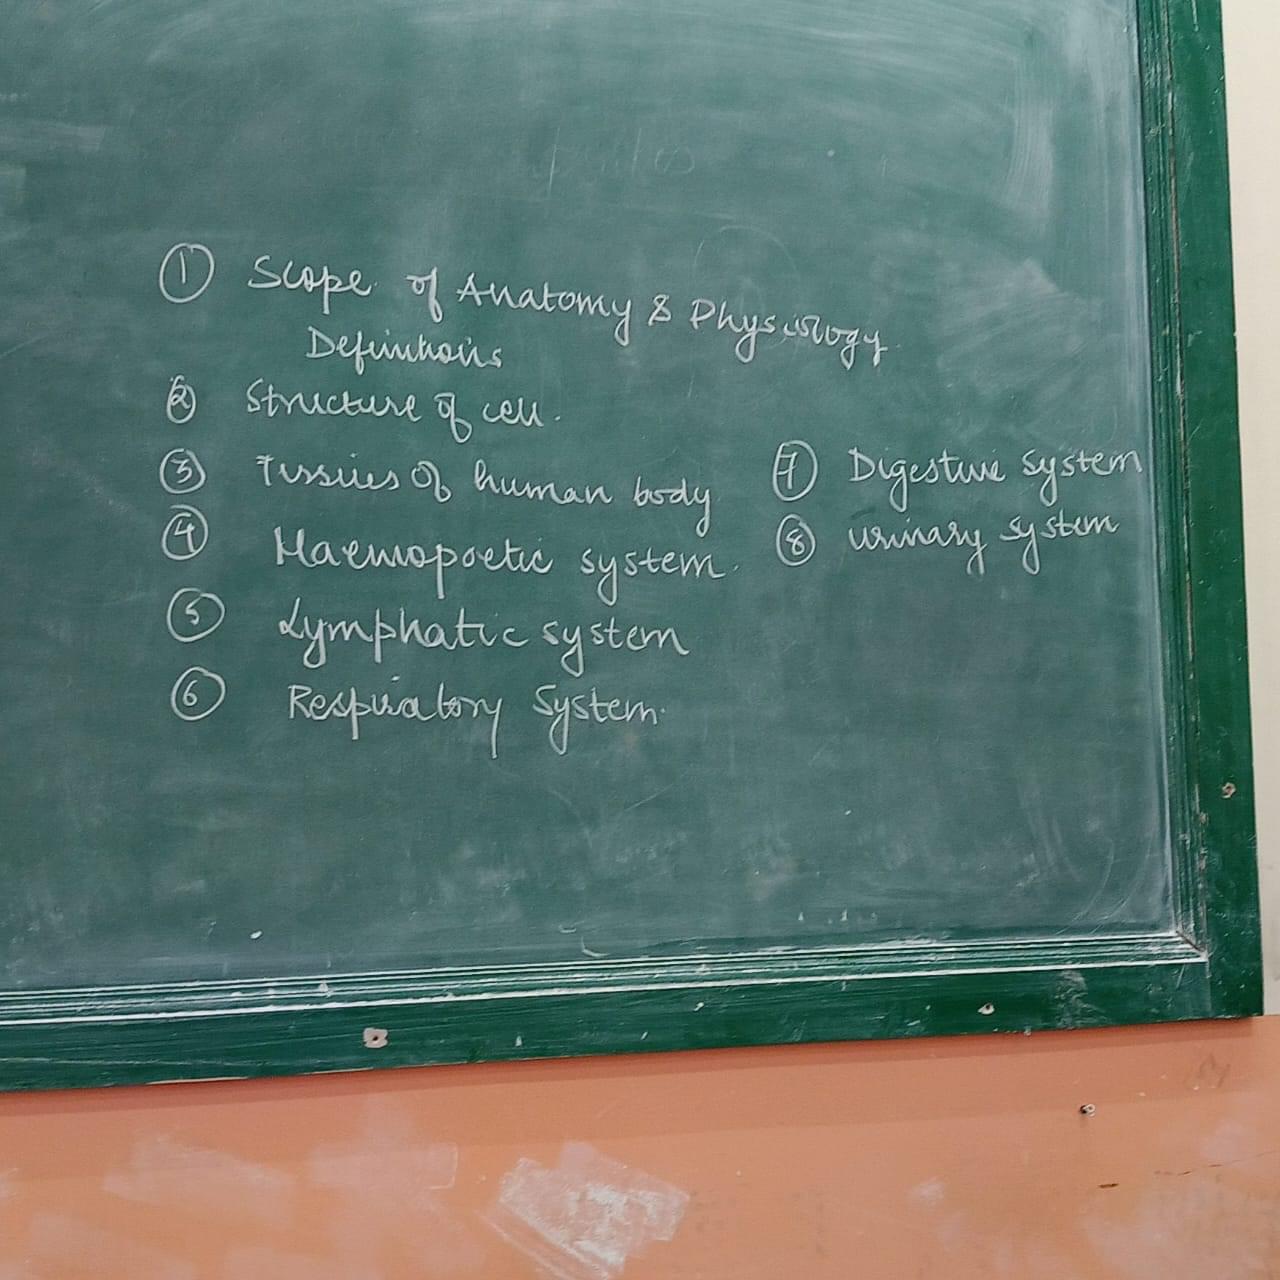 ① Scope of Anatomy & Physiology
Definitions
② Structure of cell.
③ Tissues of human body
④ Haemopoetic system.
⑤ Lymphatic system
⑥ Respiratory System.
⑦ Digestive System
⑧ urinary system